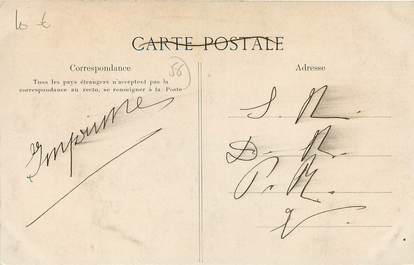 10 €
CARTE POSTALE
Correspondance
Tous les pays étrangers n'acceptent pas la
correspondance au recto, se renseigner à la Poste
(58)
Imprimé
Adresse
S. R.
D. R.
P. R.